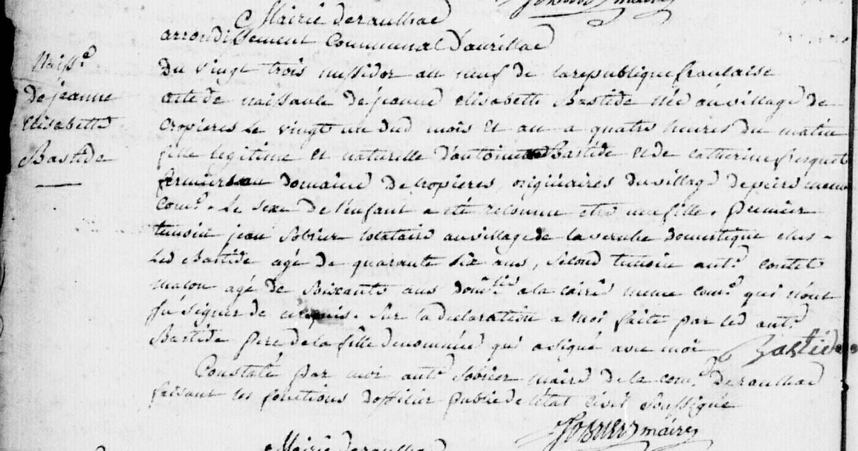 Mairie de raulhac
arrondissement Communal d'aurillac
Naiss.ce
de jeanne
elisabette
Bastide
Du vingt trois messidor an neuf de la republique francaise
acte de naissance de jeanne elisabette Bastide née au village de
Cropieres le vingt un dud mois et an a quatre heures du matin
fille legitime et naturelle d'antoine Bastide et de catherine
fermiers au domaine de cropieres, originaires du village de
com.e. Le sexe de l'enfant a eté reconnu etre une fille. premier
temoin jean Sobrier locataire au village de la domestique ches
led Bastide agé de quarante six ans, second temoin ant.e
maçon agé de soixante ans dom.lié a la meme com.e qui n'ont
su signer de ce requis. Sur la declaration a moi faite par led ant.e
Bastide pere de la fille denommée qui a signé avec moi Bastide
Constaté par moi ant.e Sobrier maire de la com.e de raulhac
faisant les fonctions d'officier public de l'etat civil soussigné
Sobrier maire
Mairie de raulhac